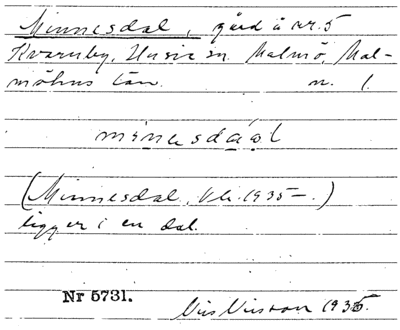 Minnesdal, gård å nr. 5
Kvarnby, Husie sn. Malmö, Mal-
möhus län. n. 1.
minesdaal
(Minnesdal, 1935-.)
ligger i en dal.
Nr 5731.
1935